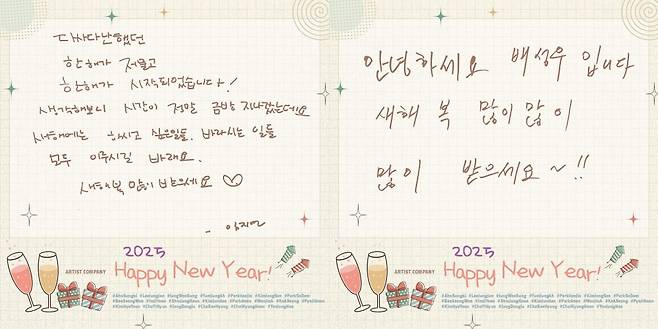 다사다난했던
한해가 저물고
한해가 시작되었습니다!
생각해보니 시간이 정말 금방 지나갔는데요
새해에는 하시고 싶은일들, 바라시는 일들
모두 이루시길 바래요.
새해복 많이 받으세요 ♡
- 임지연
2025
ARTIST COMPANY
Happy New Year!
안녕하세요 배성우 입니다
새해 복 많이 많이
많이 받으세요~!!
2025
ARTIST COMPANY
Happy New Year!